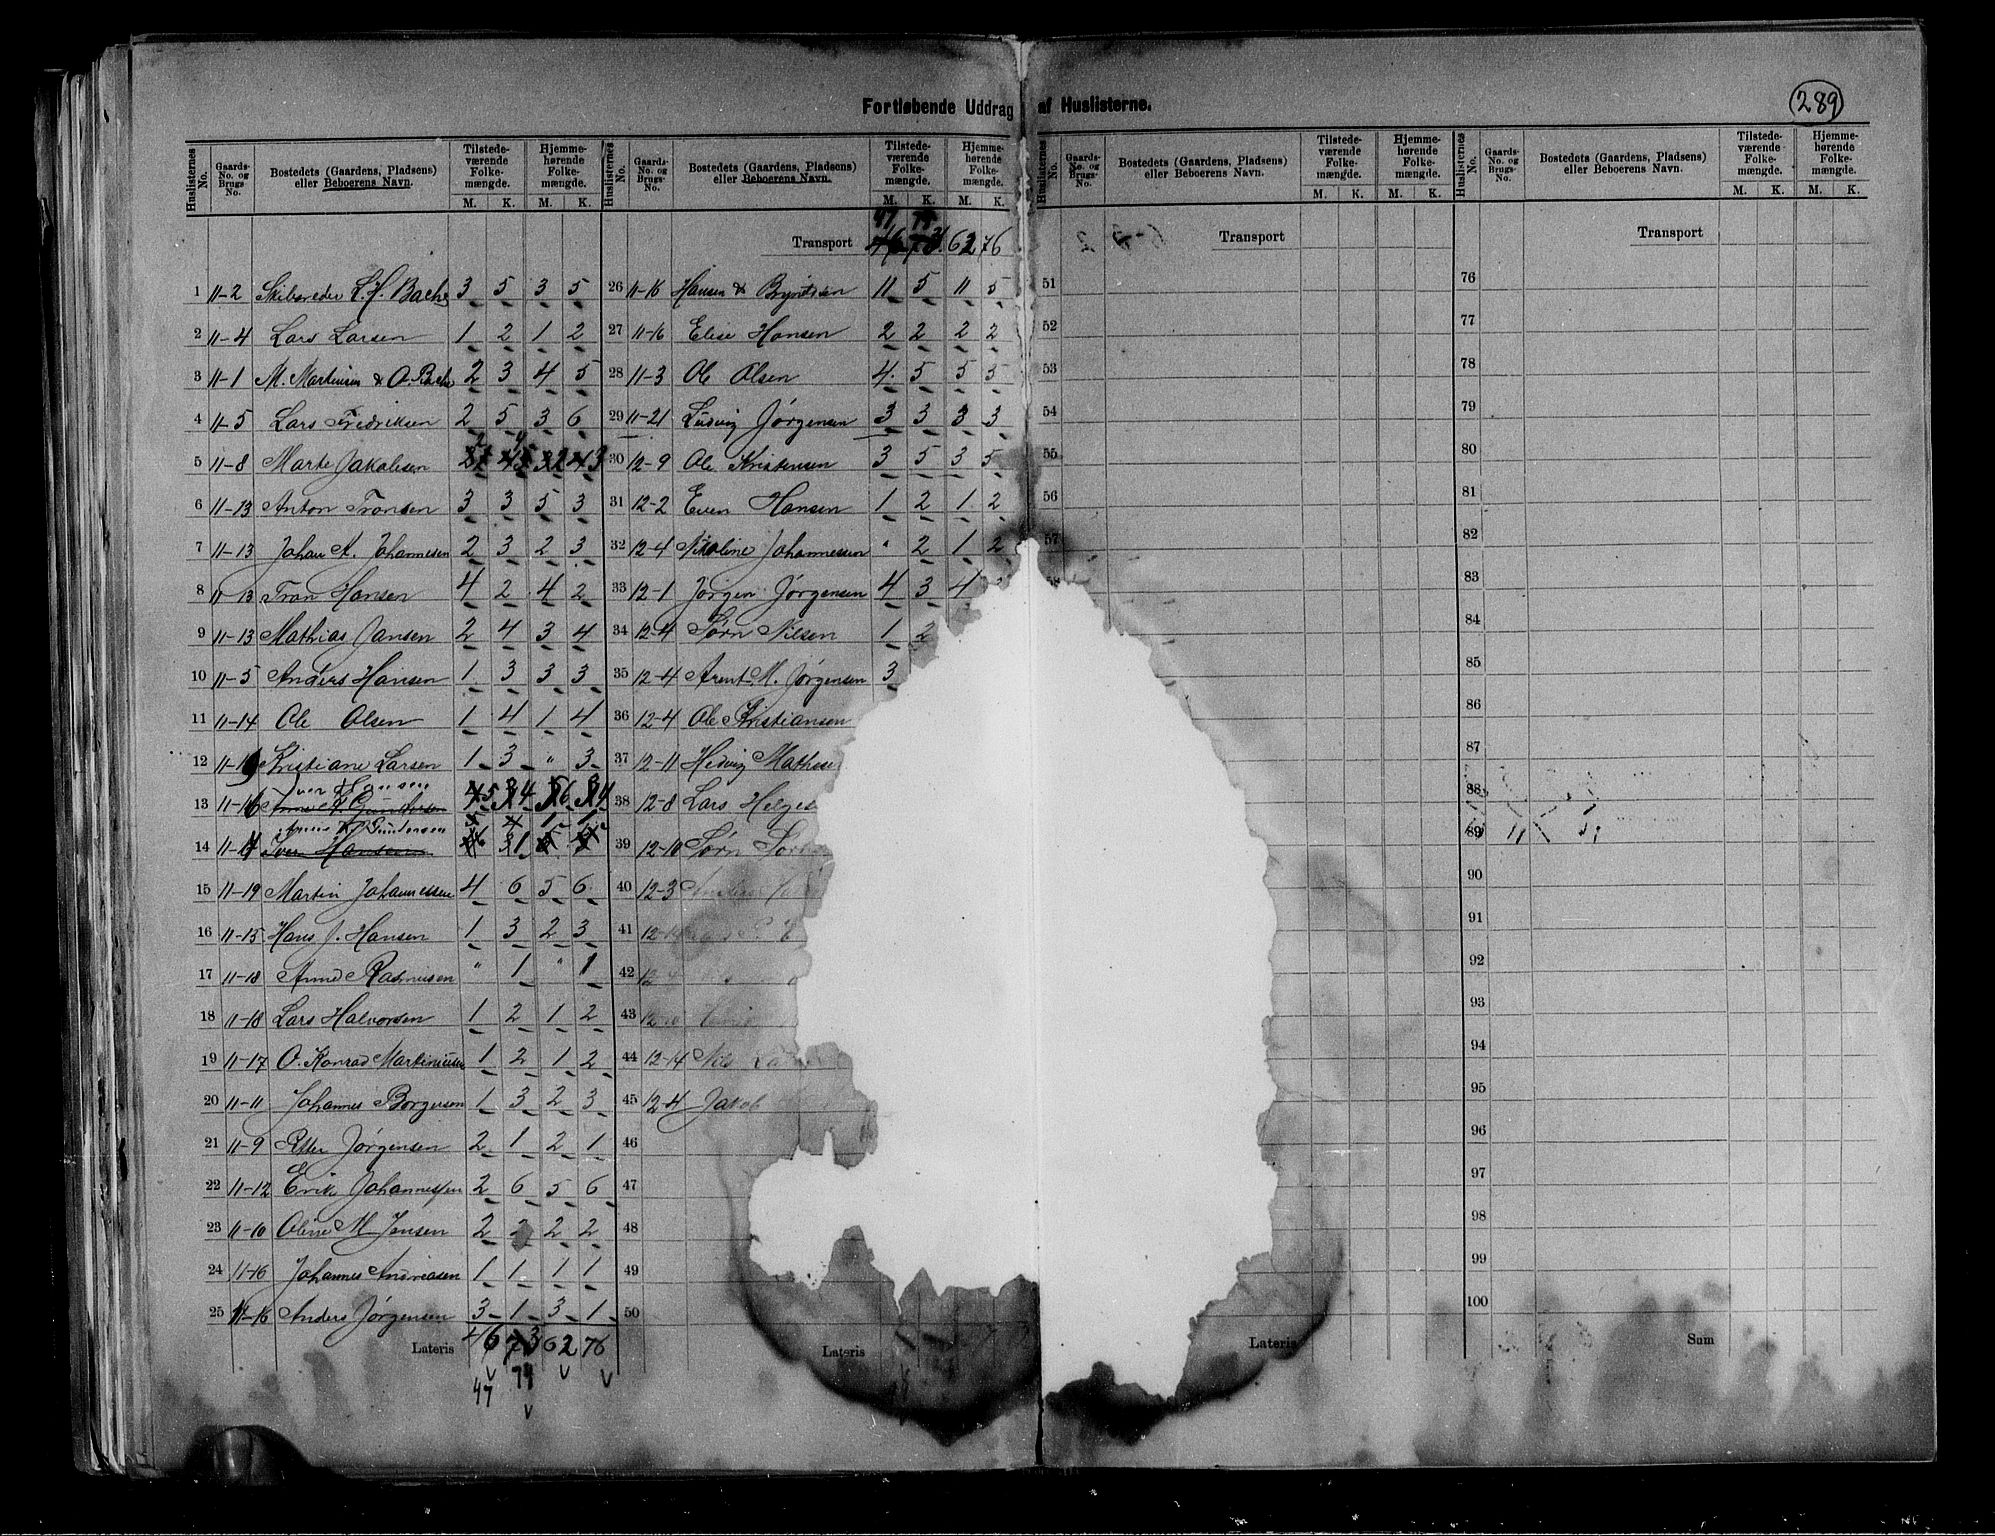 289
Fortløbende Uddrag af Huslisterne.
Huslisternes No. Gaards- No. og Brugs- No. Bostedets (Gaardens, Pladsens) eller Beboerens Navn. Tilstede- værende Folke- mængde. M. K. Hjemme- hørende Folke- mængde. M. K.
1 11-2 Skibsreder L. H. Bache 3 5 3 5
2 11-4 Lars Larsen 1 2 1 2
3 11-1 M. Martinsen & O. Bache 2 3 4 5
4 11-5 Lars Fredriksen 2 5 3 6
5 11-8 Marte Jakobsen
6 11-13 Anton Transen 3 3 5 3
7 11-13 Johan A. Johannesen 2 3 2 3
8 11-13 Tran Hansen 4 2 4 2
9 11-13 Mathias Jansen 2 4 3 4
10 11-5 Anders Hansen 1 3 3 3
11 11-14 Ole Olsen 1 4 1 4
12 Kristiane Larsen 1 3 " 3
Iver Hansen
13 11-16 5 4 6 4
Anne K. Gundersen
14 Iver Hansen
15 11-19 Martin Johannessen 4 6 5 6
16 11-15 Hans J. Hansen 1 3 2 3
17 11-18 Anne Rasmusen " 1 " 1
18 11-18 Lars Halvorsen 1 2 1 2
19 11-17 O. Konrad Martiniusen 1 2 1 2
20 11-11 Johannes Borgersen 1 3 2 3
21 11-9 Petter Jörgensen 2 1 2 1
22 11-12 Erik Johannessen 2 6 5 6
23 11-10 Oline M Jensen 2 2 2 2
24 11-16 Johannes Andreasen 1 1 1 1
25 11-16 Anders Jörgensen 3 1 3 1
Lateris 46 73 62 76
47 74
Huslisternes No. Gaards- No. og Brugs- No. Bostedets (Gaardens, Pladsens) eller Beboerens Navn. Tilstede- værende Folke- mængde. M. K. Hjemme- hørende Folke- mængde. M. K.
47 74
Transport 46 73 62 76
26 11-16 Hansen & Bryntesen 11 5 11 5
27 11-16 Elise Hansen 2 2 2 2
28 11-3 Ole Olsen 4 5 5 5
29 11-21 Ludvig Jörgensen 3 3 3 3
30 12-9 Ole Kristensen 3 5 3 5
31 12-2 Even Hansen 1 2 1 2
32 12-4 Nikoline Johannessen " 2 1 2
33 12-1 Jörgen Jörgensen 4 3 4
34 12-4 Sörn Nilsen 1 2
35 12-4 Arent M. Jörgensen 3
36 12-4 Ole Kristiansen
37 12-11 Hedvig Mathise
38 12-8 Lars Helges
39 12-10 Sörn
40 12-3
41 12-14
42 12-4
43
44 12-14 Nils
45 12-4 Jakob
46
47
48
49
50
Lateris
Huslisternes No. Gaards- No. og Brugs- No. Bostedets (Gaardens, Pladsens) eller Beboerens Navn. Tilstede- værende Folke- mængde. M. K. Hjemme- hørende Folke- mængde. M. K.
Transport
51
52
53
54
55
56
57
Lateris
Huslisternes No. Gaards- No. og Brugs- No. Bostedets (Gaardens, Pladsens) eller Beboerens Navn. Tilstede- værende Folke- mængde. M. K. Hjemme- hørende Folke- mængde. M. K.
Transport
76
77
78
79
80
81
82
83
84
85
86
87
88
89
90
91
92
93
94
95
96
97
98
99
100
Sum